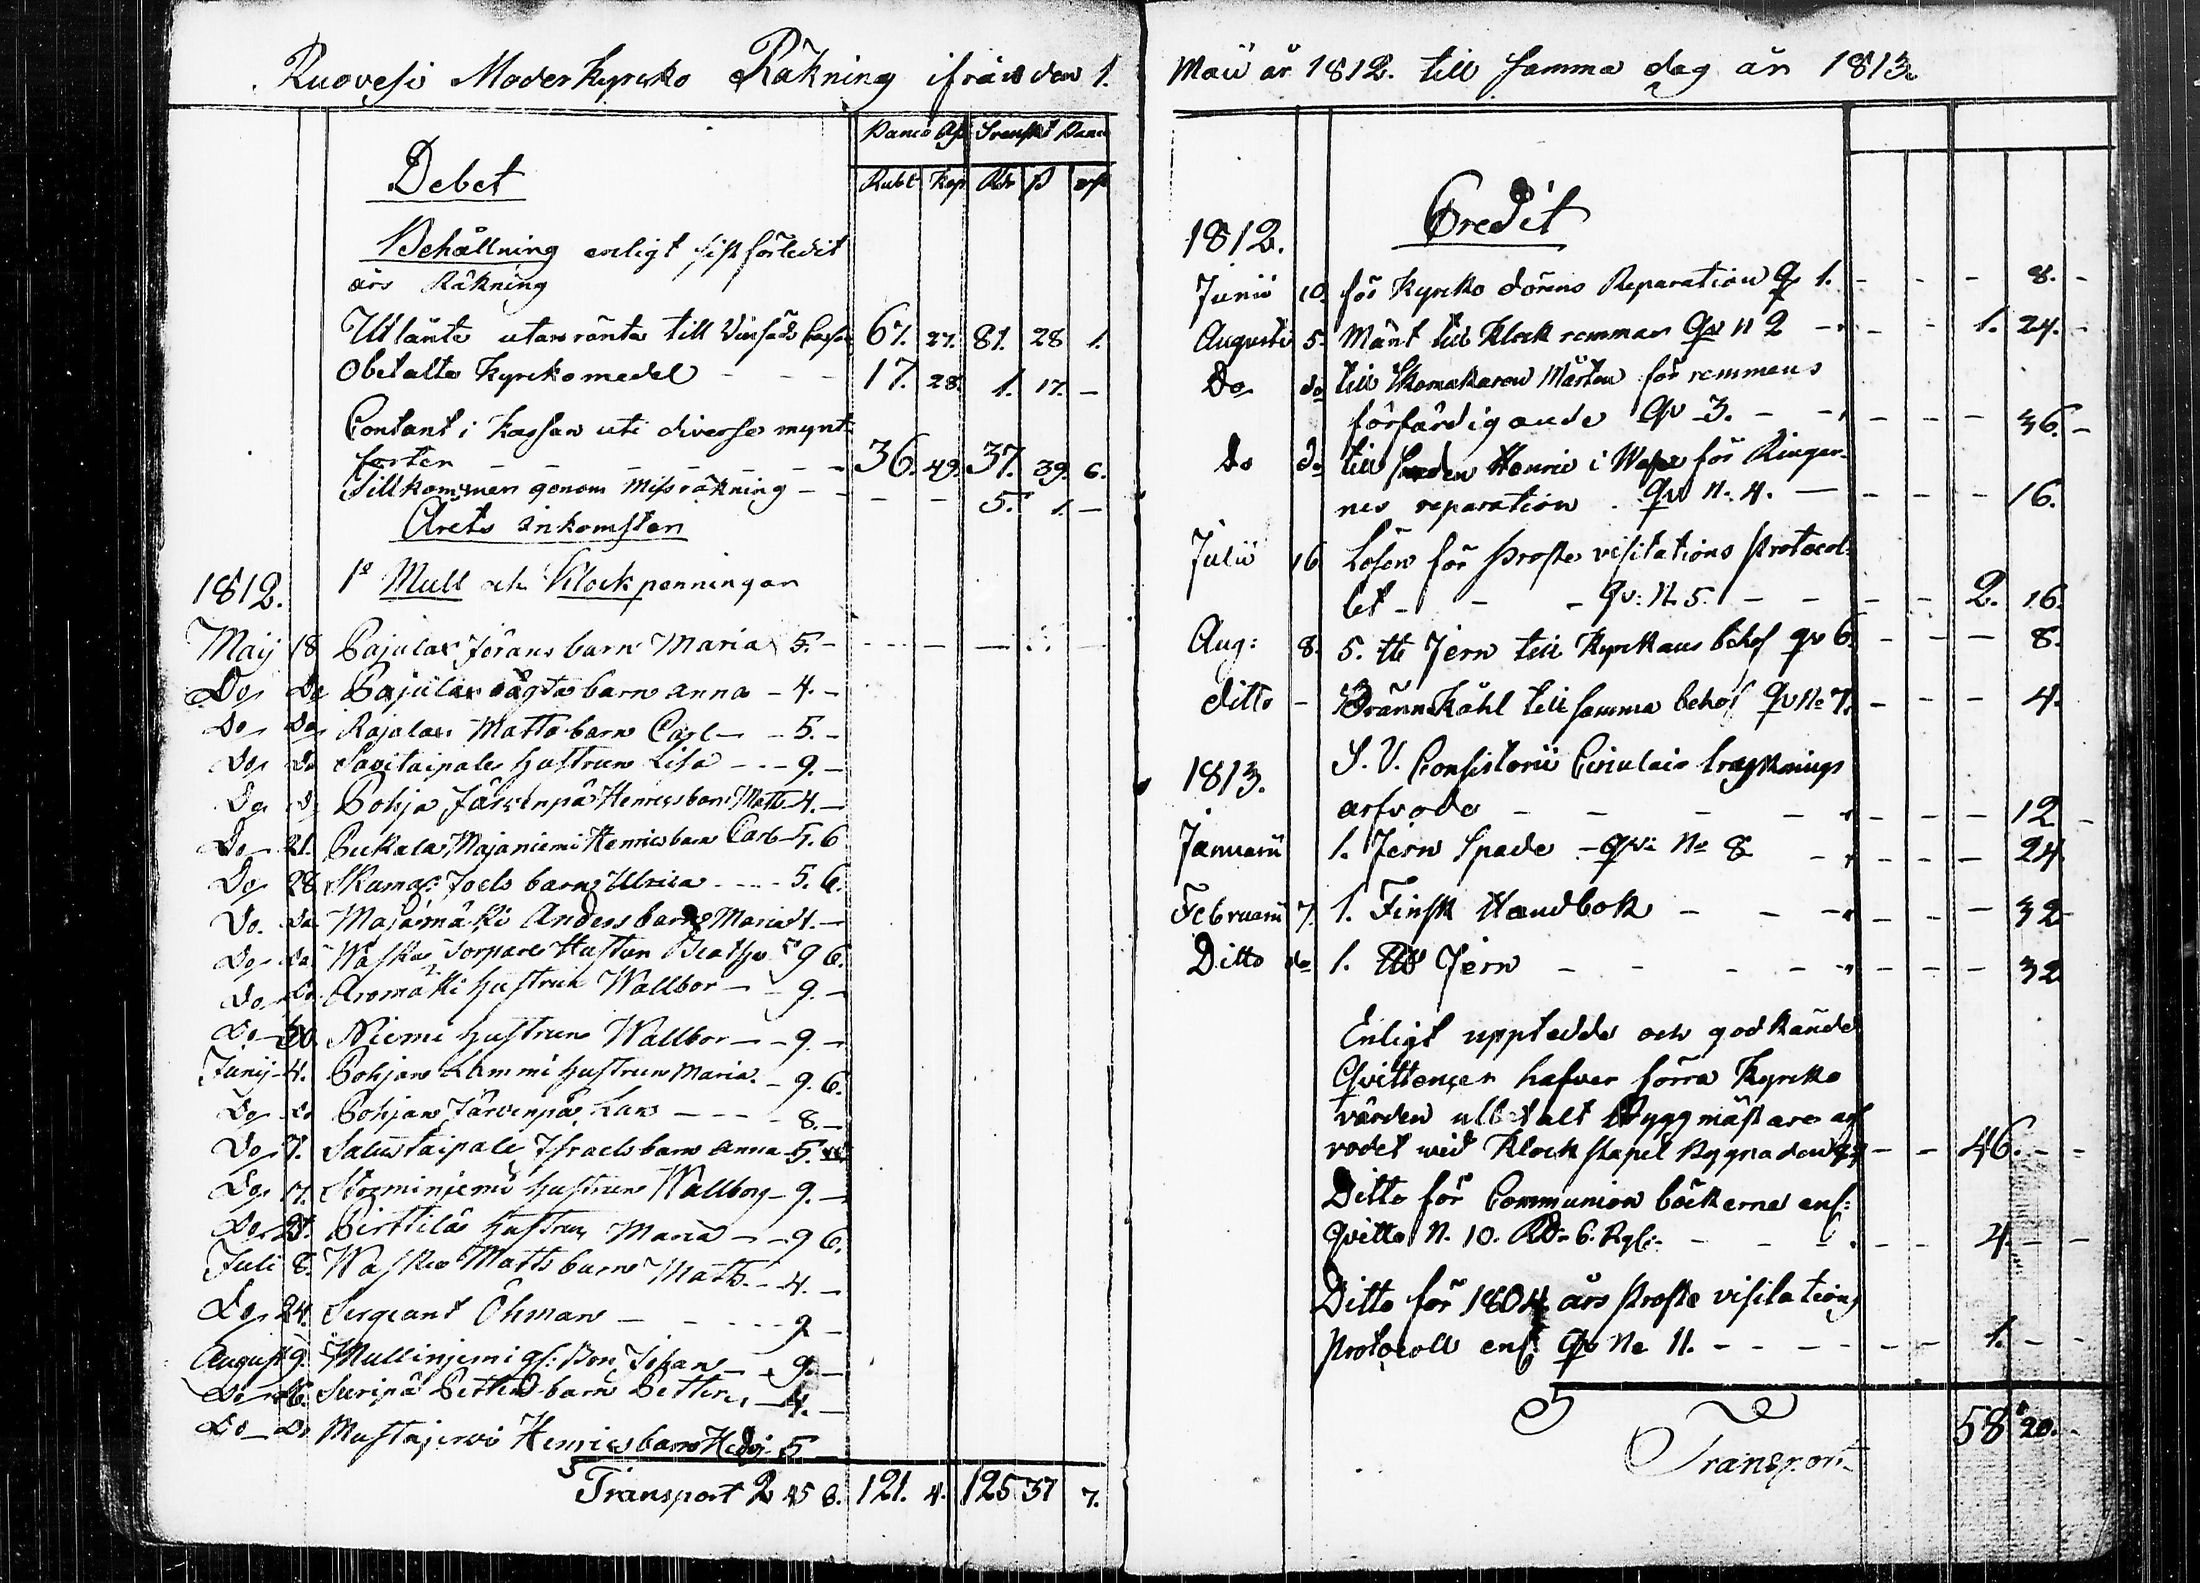 Ruovesi Moderkyrcko Räkning ifrån den 1.
Banco Ass Svenskt Banco
Debet
Rubl Kop Rdr ß rst
Behållning enligt sist förledit
års Räkning
Utlånte utan ränta till 67. 27. 81. 28 1.
Obetalte kyrckomedel - - - 17. 28. 1. 17. -
Contant i kassan uti diverse mynt
sorter - - - - - - 36. 49. 37. 39. 6.
Tillkommer genom Missräkning - - - - 5. 1. -
Årets Inkomster
1812. 1o Mull och Klockpenningar
Maij 18 Pajulax Jörans barn Maria 5. -
Do Do Pajulax barn Anna - 4. -
Do Do Rajalax Matts barn Carl - - 5. -
Do Do Savitaipale hustrun Lisa - - - 9. -
Do Do Pohja Järvenpä Henrics barn Matts 4. -
Do 21. Pukala Majaniemi Henrics barn Carl 5. 6
Do 28 Joels barn Ulrica - - - - 5. 6.
Do Do Majamäki Anders barn Maria 4. -
Do Do Waska Torpare Hustrun Beata 9 6.
Do Do Aromäki hustrun Wallbor - - 9. -
Do 30. Niemi hustrun Wallbor - - 9. -
Junij 4. Pohjan Lammi hustrun Maria. - 9. 6.
Do Do Pohjan Järvenpä Lars - - - - 8. -
Do 7. Israels barn Anna - 5.
Do 17. Storminiemi hustrun Wallborg - 9. -
Do 21. Pirttilä hustrun Maria - - 9 6.
Juli 8. Waskos Matts barn Matts. - - 4. -
Do 24. Sergeant Öhman - - - - - 9 -
August 9. Mullinjemi Johan - 9. -
Do 16. Petters barn Petter, - 4. -
Do - Do Mustajervi Henrics barn Hedvi 5 -
Transport 2 45 8. 121. 4. 125 37 7.
Maii år 1812. till samma dag år 1813.
Credit
1812.
Junii 10. för kyrcko dörens Reparation Qv 1. - - - 8. -
Augusti 5. till Klock remmar Qv N 2 - - - 1. 24. -
Do do till Skomakaren Mårten för remmens
förfärdigande Qv 3. - - - - - 36. -
Do do till Henric i för Ringar-
nes reparation. Qv N. 4. - - - - 16.
Julii 16 Lösen för Proste visitations Protocol-
let - - - Qv: N. 5. - - - - 2. 16.
Aug: 8. 5. tt Jern till kyrkans behof qv 6. - - - 8.
ditto - Brännkåhl till samma behof Qv No 7. - - - 4.
1813.
S. V. Consistorii Circulair
arfvode - - - - - - - - 12 -
Januarii 1. Jern Spade - qv: No 8 - - - - - 24.
Februarii 7. 1. Finsk Handbok - - - - - - 32
Ditto do 1. Jern - - - - - - - - 32
Enligt uppteedde och godkände
Qvittencer hafver förra kyrcko
värden utbetalt Byggmästare arf
vodet wid Klockstapel Bygnaden - - 46. - -
Ditto för Communion böckerne enl:
Qvitto N. 10. Rdr 6. Rgls: - - - - - - 4. - -
Ditto för 1804 års Proste visitations
Protocoll enl: Qv No 11. - - - - - - 1. - -
58 20. -
Transport